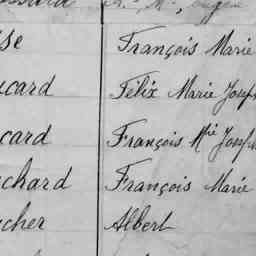 se François Marie
card Félix Marie Joseph
card François Mie Joseph
chard François Marie
cher Albert